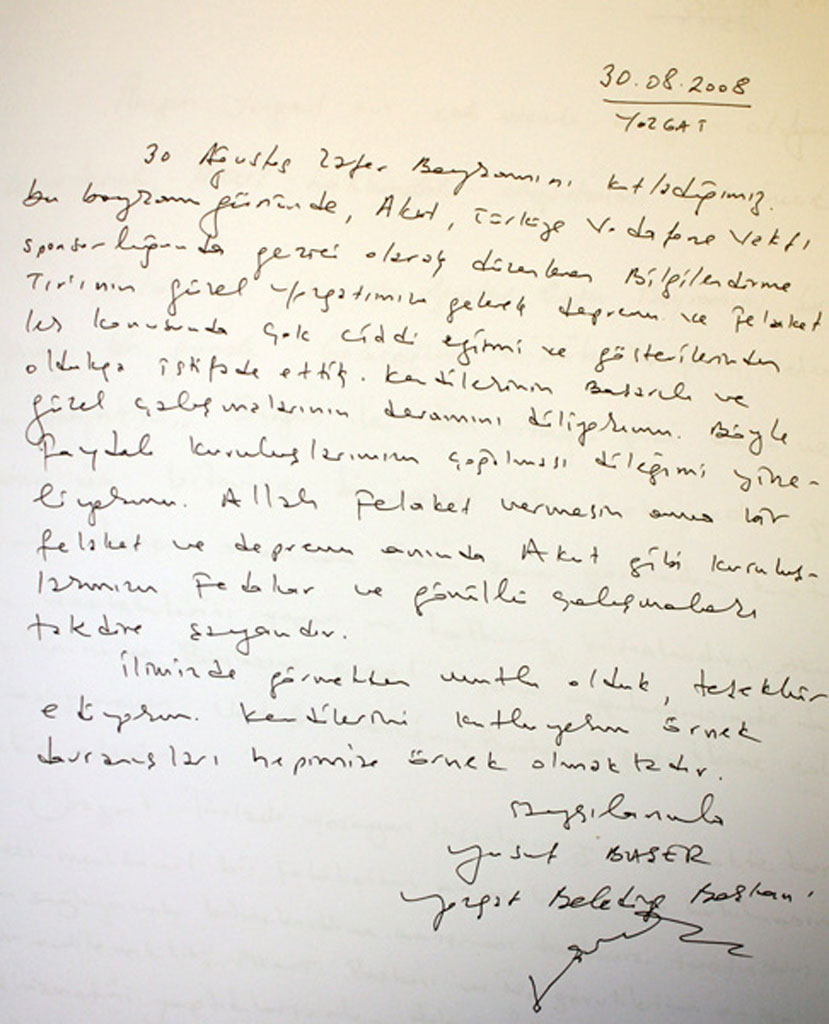 30.08.2008
YOZGAT
30 Ağustos Zafer Bayramını kutladığımız
bu bayram gününde, Akut, Türkiye Vodafone Vakfı
sponsorluğunda gezici olarak düzenlenen Bilgilendirme
Tırının güzel Yozgatımıza gelerek deprem ve felaket
ler konusunda çok ciddi eğitmi ve gösterilerinden
oldukça istifade ettik. Kendilerinin Başarılı ve
güzel çalışmalarının devamını diliyorum. Böyle
faydalı kuruluşlarımızın çoğalması dileğimi yine-
liyorum. Allah Felaket vermesin ama bir
felaket ve deprem anında Akut gibi kuruluş-
larımızın Fedakar ve gönüllü çalışmaları
takdire şayandır.
İlimizde görmekten mutlu olduk, teşekkür
ediyorum. Kendilerini kutluyorum örnek
davranışları hepimize örnek olmaktadır.
Saygılarımla
Yusuf BAŞER
Yozgat Belediye Başkanı